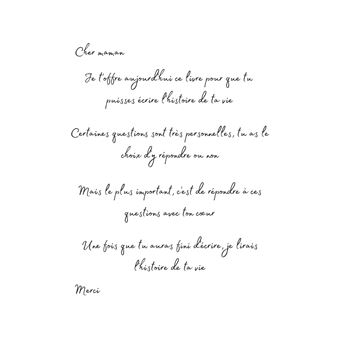 Cher maman
Je t'offre aujourd'hui ce livre pour que tu
puisses écrire l'histoire de ta vie
Certaines questions sont très personnelles, tu as le
choix d'y répondre ou non
Mais le plus important, c'est de répondre à ces
questions avec ton cœur
Une fois que tu auras fini d'écrire, je lirais
l'histoire de ta vie
Merci